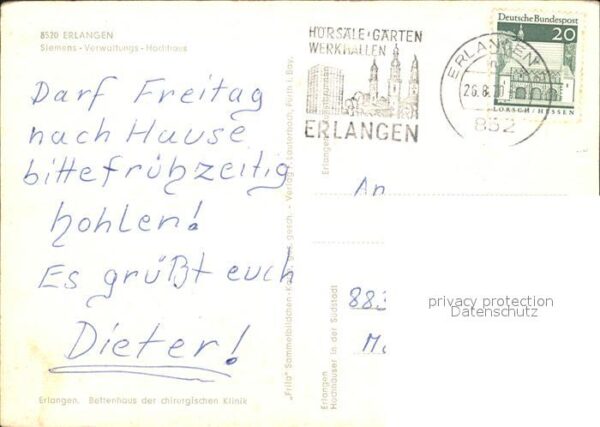 8520 ERLANGEN
Siemens - Verwaltungs - Hochhaus
Darf Freitag
nach Hause
bitte frühzeitig
hohlen!
Es grüßt euch
Dieter!
Erlangen. Bettenhaus der chirurgischen Klinik
"Frifa" Sammelbildchen-Karte ges. gesch. - Verlag Lauterbach, Fürth i. Bay.
Erlangen
Erlangen
Hochhäuser in der Südstadt
HÖRSÄLE·GÄRTEN
WERKHALLEN
ERLANGEN
ERLANGEN
26.8.70
852
Deutsche Bundespost
20
LORSCH/HESSEN
An
883
privacy protection
Datenschutz